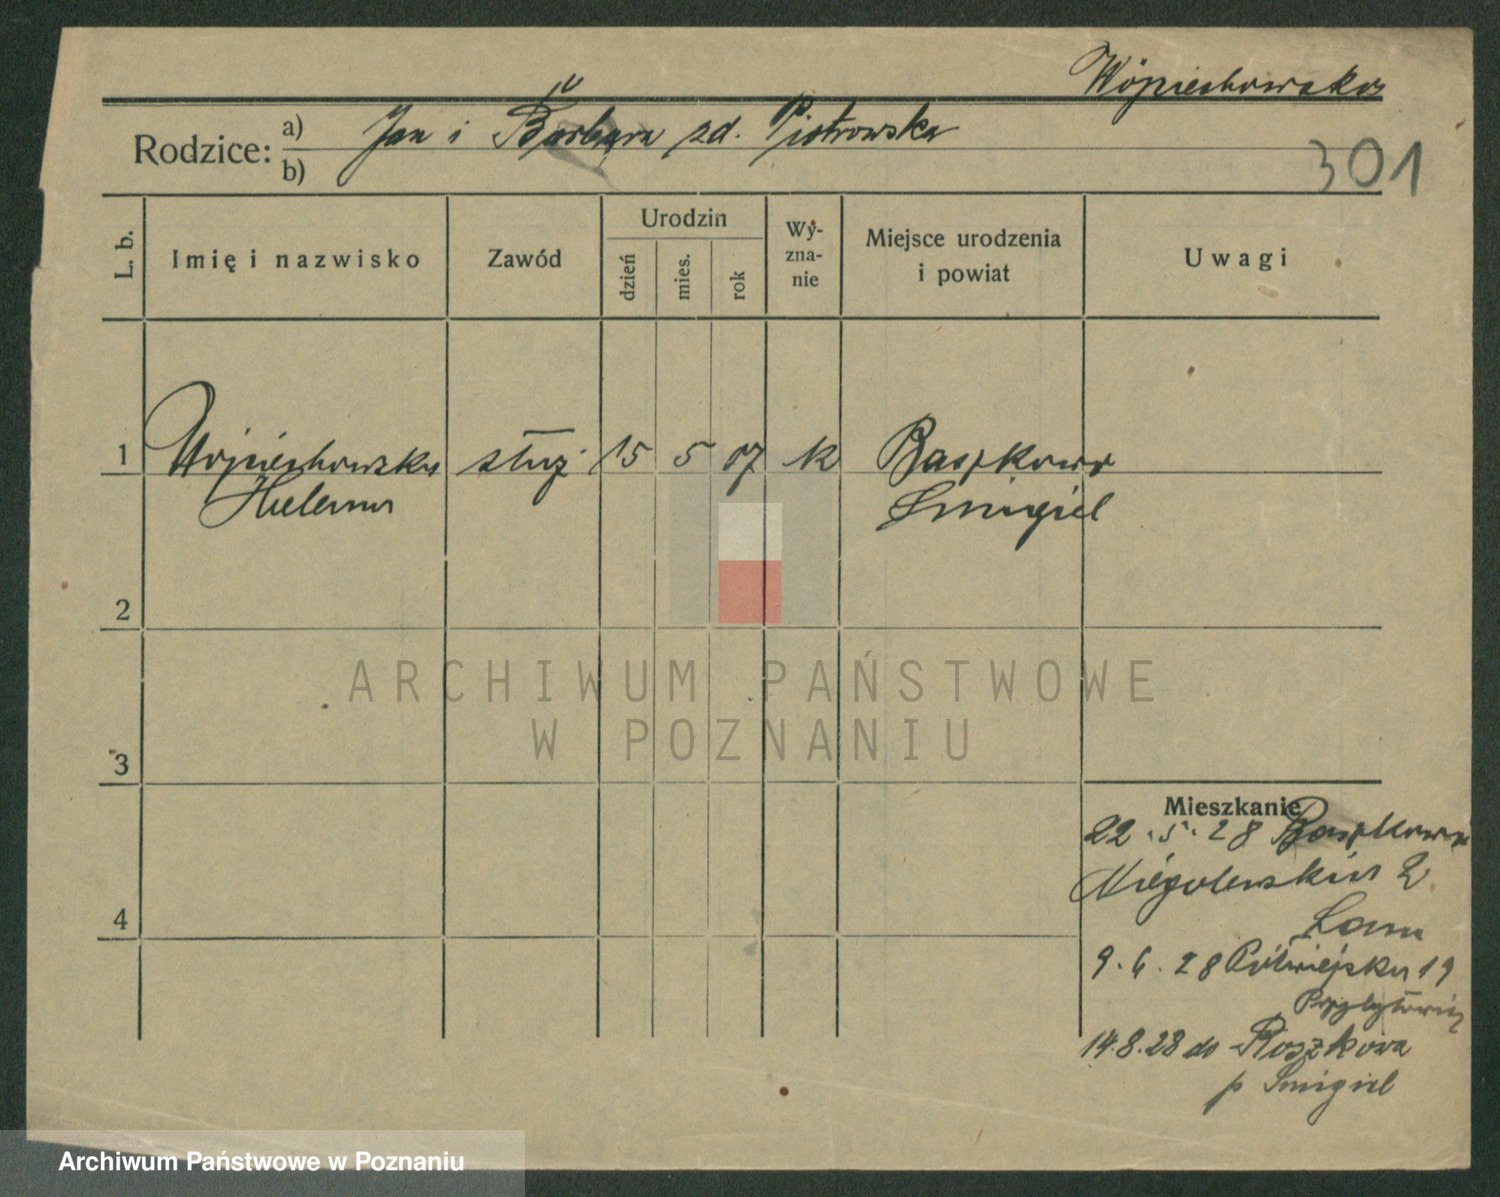 Wojciechowska
Rodzice: a) Jan i Barbara zd. Piotrowska
b)
301
L. b.
Imię i nazwisko
Zawód
Urodzin
dzień
mies.
rok
Wy-
zna-
nie
Miejsce urodzenia
i powiat
Uwagi
1 Wojciechowska służ. 15 5 07 k Boszkowo
Helena Śmigiel
2
ARCHIWUM PAŃSTWOWE
W POZNANIU
3
Mieszkanie
22.5.28 Boszkowo
Niegolewskich 2
9.6.28 Półwiejska 19
14.8.28 do Boszkowa
p Śmigiel
4
Archiwum Państwowe w Poznaniu